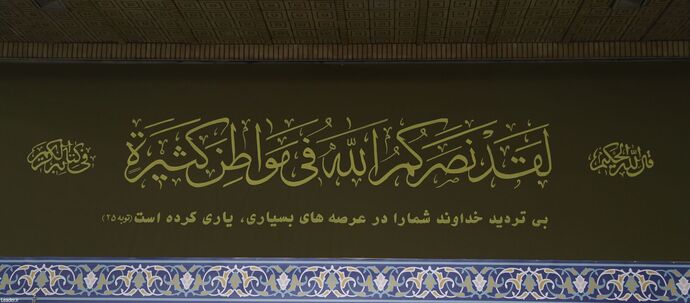 قال الله الحکیم
فی کتابه الکریم
لَقَدْ نَصَرَكُمُ اللهُ فی مَوَاطِنَ كَثِيرَةٍ
بی تردید خداوند شمارا در عرصه های بسیاری، یاری کرده است (توبه ۲۵)
Leader.ir